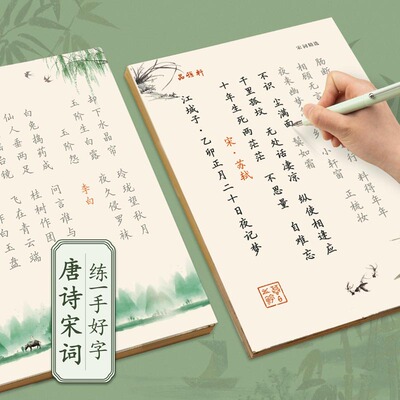 宋词精选
品雅轩
相顾无言
料得年年
夜来幽梦
小轩窗
正梳妆
不识
尘满面
鬓如霜
千里孤坟
无处话凄凉
纵使相逢应
十年生死两茫茫
不思量
自难忘
宋·苏轼
江城子·乙卯正月二十日夜记梦
却下水晶帘
玲珑望秋月
玉阶生白露
夜久侵罗袜
玉阶怨
李白
白兔捣药成
问言谁与
仙人垂两足
桂树作团
飞在青云端
作白玉盘
练一手好字
唐诗宋词